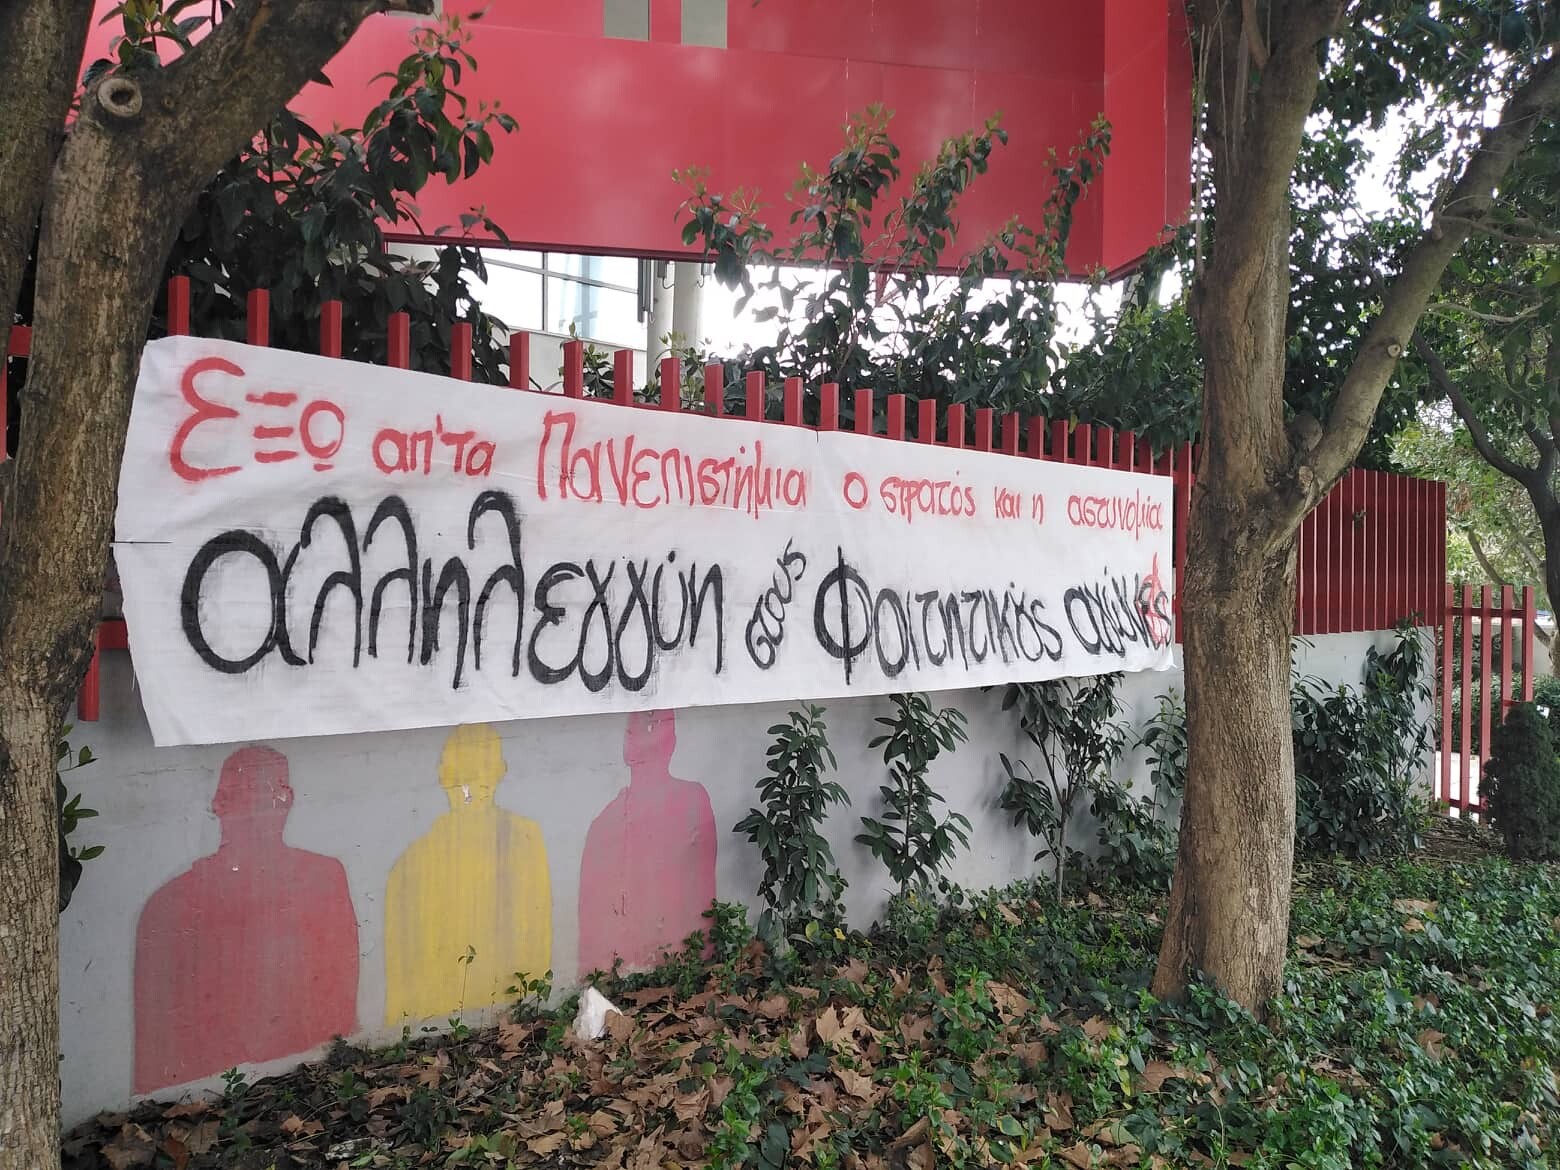 Εξω απ'τα Πανεπιστήμια ο στρατός και η αστυνομία
αλληλεγγύη στους Φοιτητικούς αγώνες